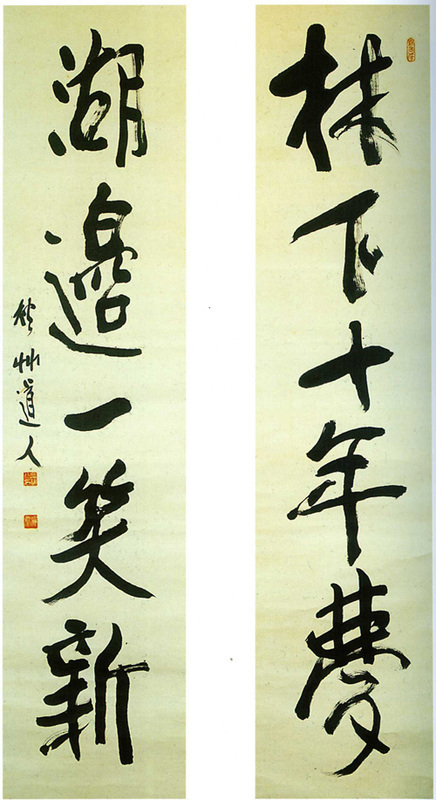 林下十年夢
湖邊一笑新
竹州道人